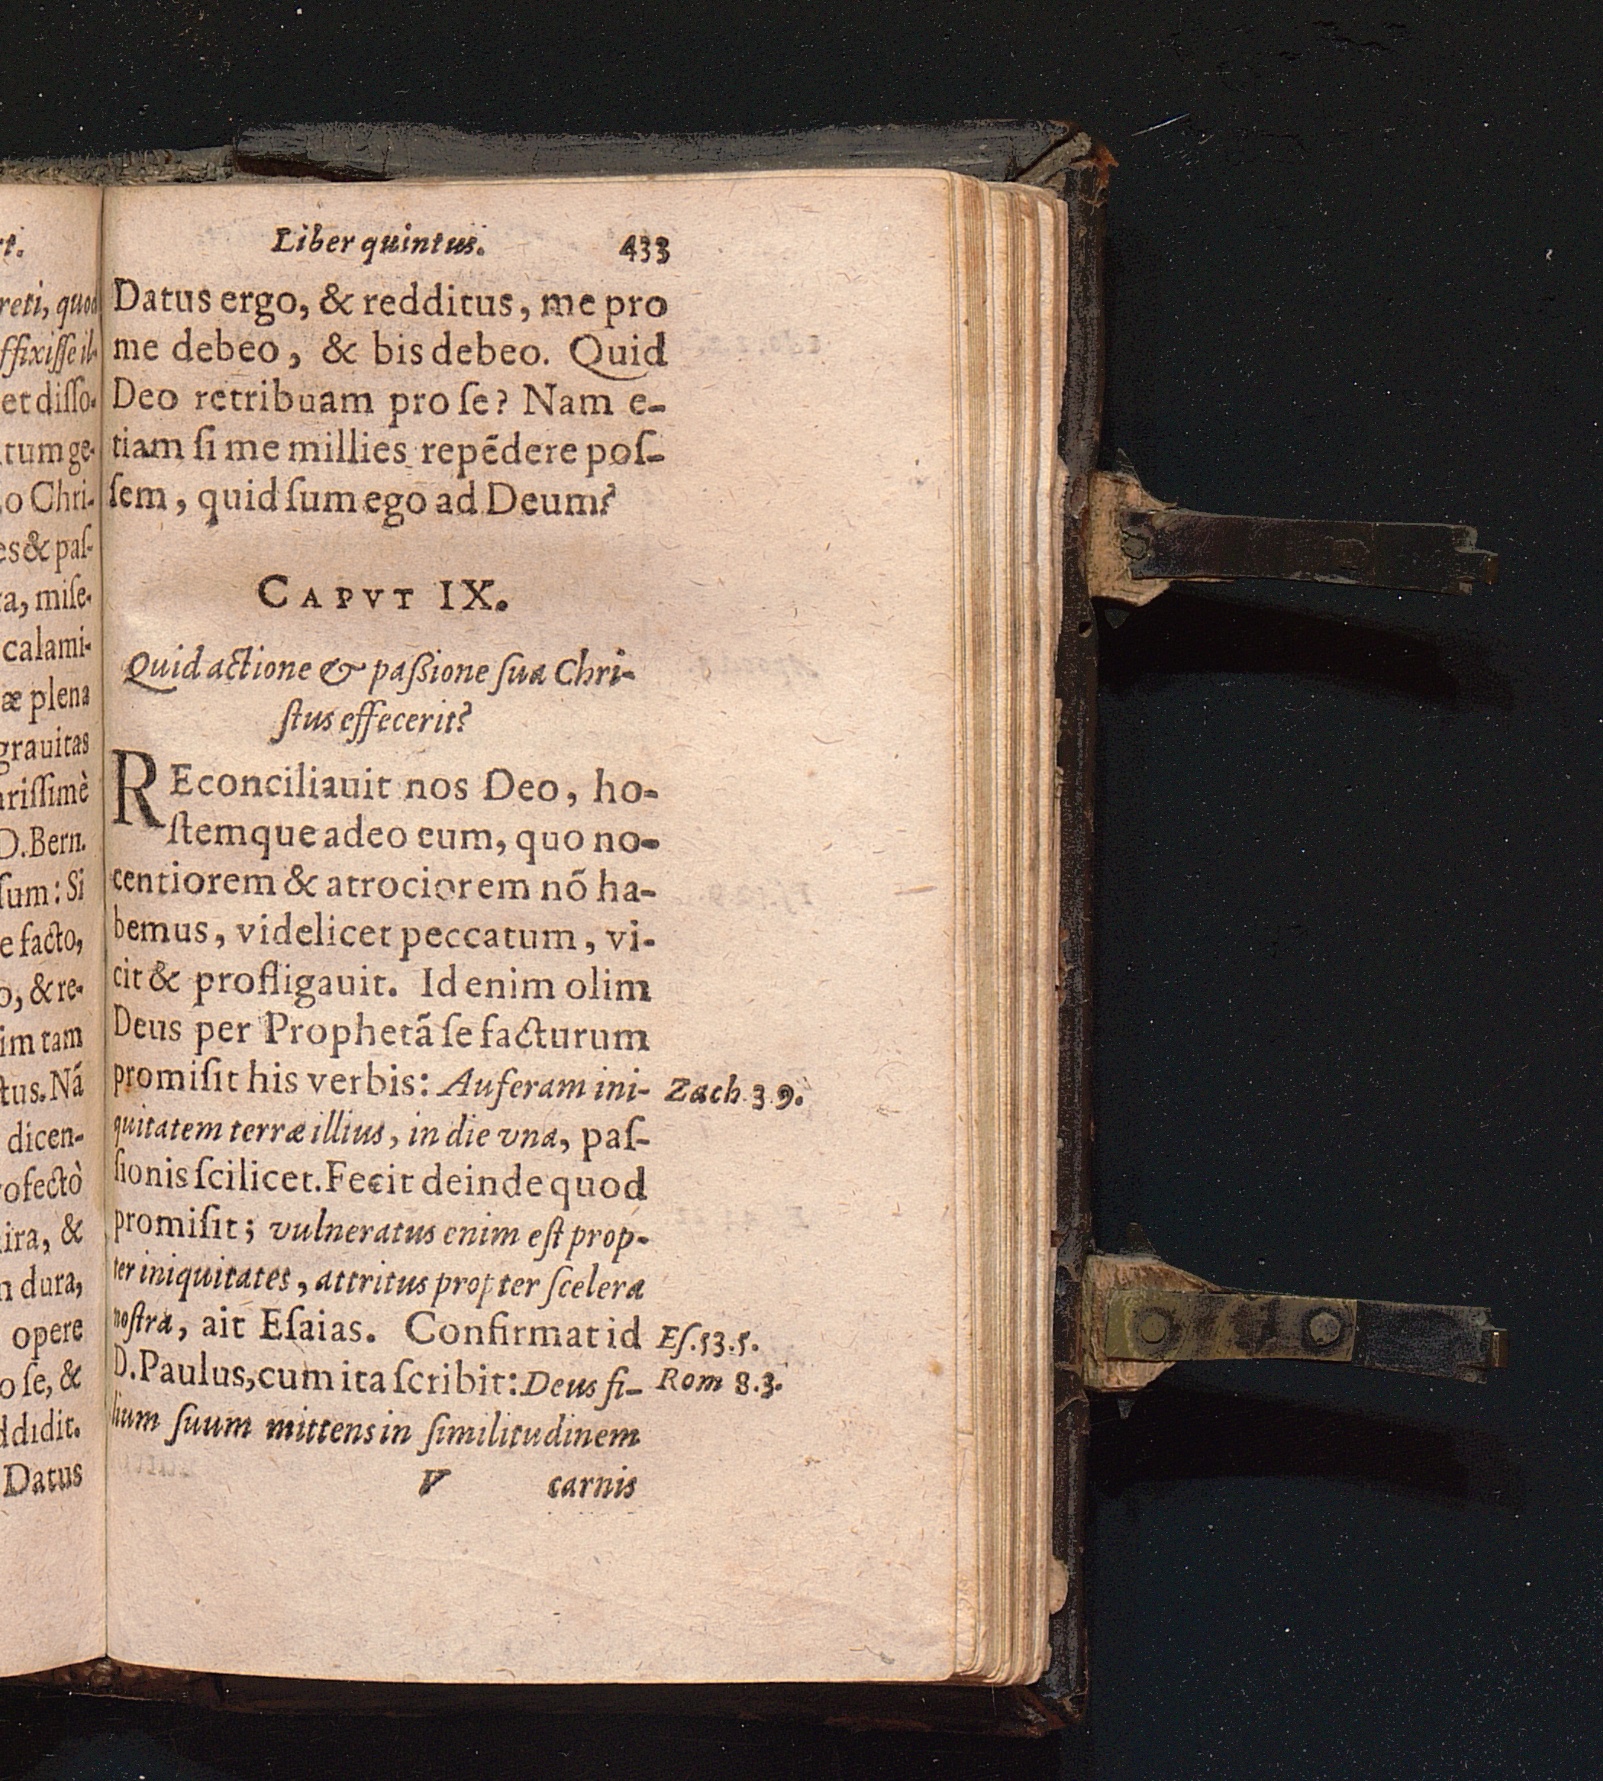 rt.
reti, quod
ffixiſſe il-
et diſſo-
tum ge-
o Chri-
es & paſ-
ra, miſe-
calami-
æ plena
grauitas
riſſimè
D. Bern.
ſum: Si
e facto,
o, & re-
im tam
ctus. Nã
dicen-
ofectò
ira, &
n dura,
opere
o ſe, &
ddidit.
Datus
Liber quintus. 433
Datus ergo, & redditus, me pro
me debeo, & bis debeo. Quid
Deo retribuam pro ſe? Nam e-
tiam ſi me millies repēdere poſ-
ſem, quid ſum ego ad Deum?
CAPVT IX.
Quid actione & paßione ſua Chri-
ſtus effecerit?
REconciliauit nos Deo, ho-
ſtemque adeo eum, quo no-
centiorem & atrociorem nõ ha-
bemus, videlicet peccatum, vi-
cit & profligauit. Id enim olim
Deus per Prophetã ſe facturum
promiſit his verbis: Auferam ini- Zach 3 9.
quitatem terræ illius, in die vna, paſ-
ſionis ſcilicet. Fecit deinde quod
promiſit; vulneratus enim eſt prop-
ter iniquitates, attritus propter ſcelera
noſtra, ait Eſaias. Confirmat id Eſ. 53. 5.
D. Paulus, cum ita ſcribit: Deus fi- Rom 8. 3.
lium ſuum mittens in ſimilitudinem
V carnis